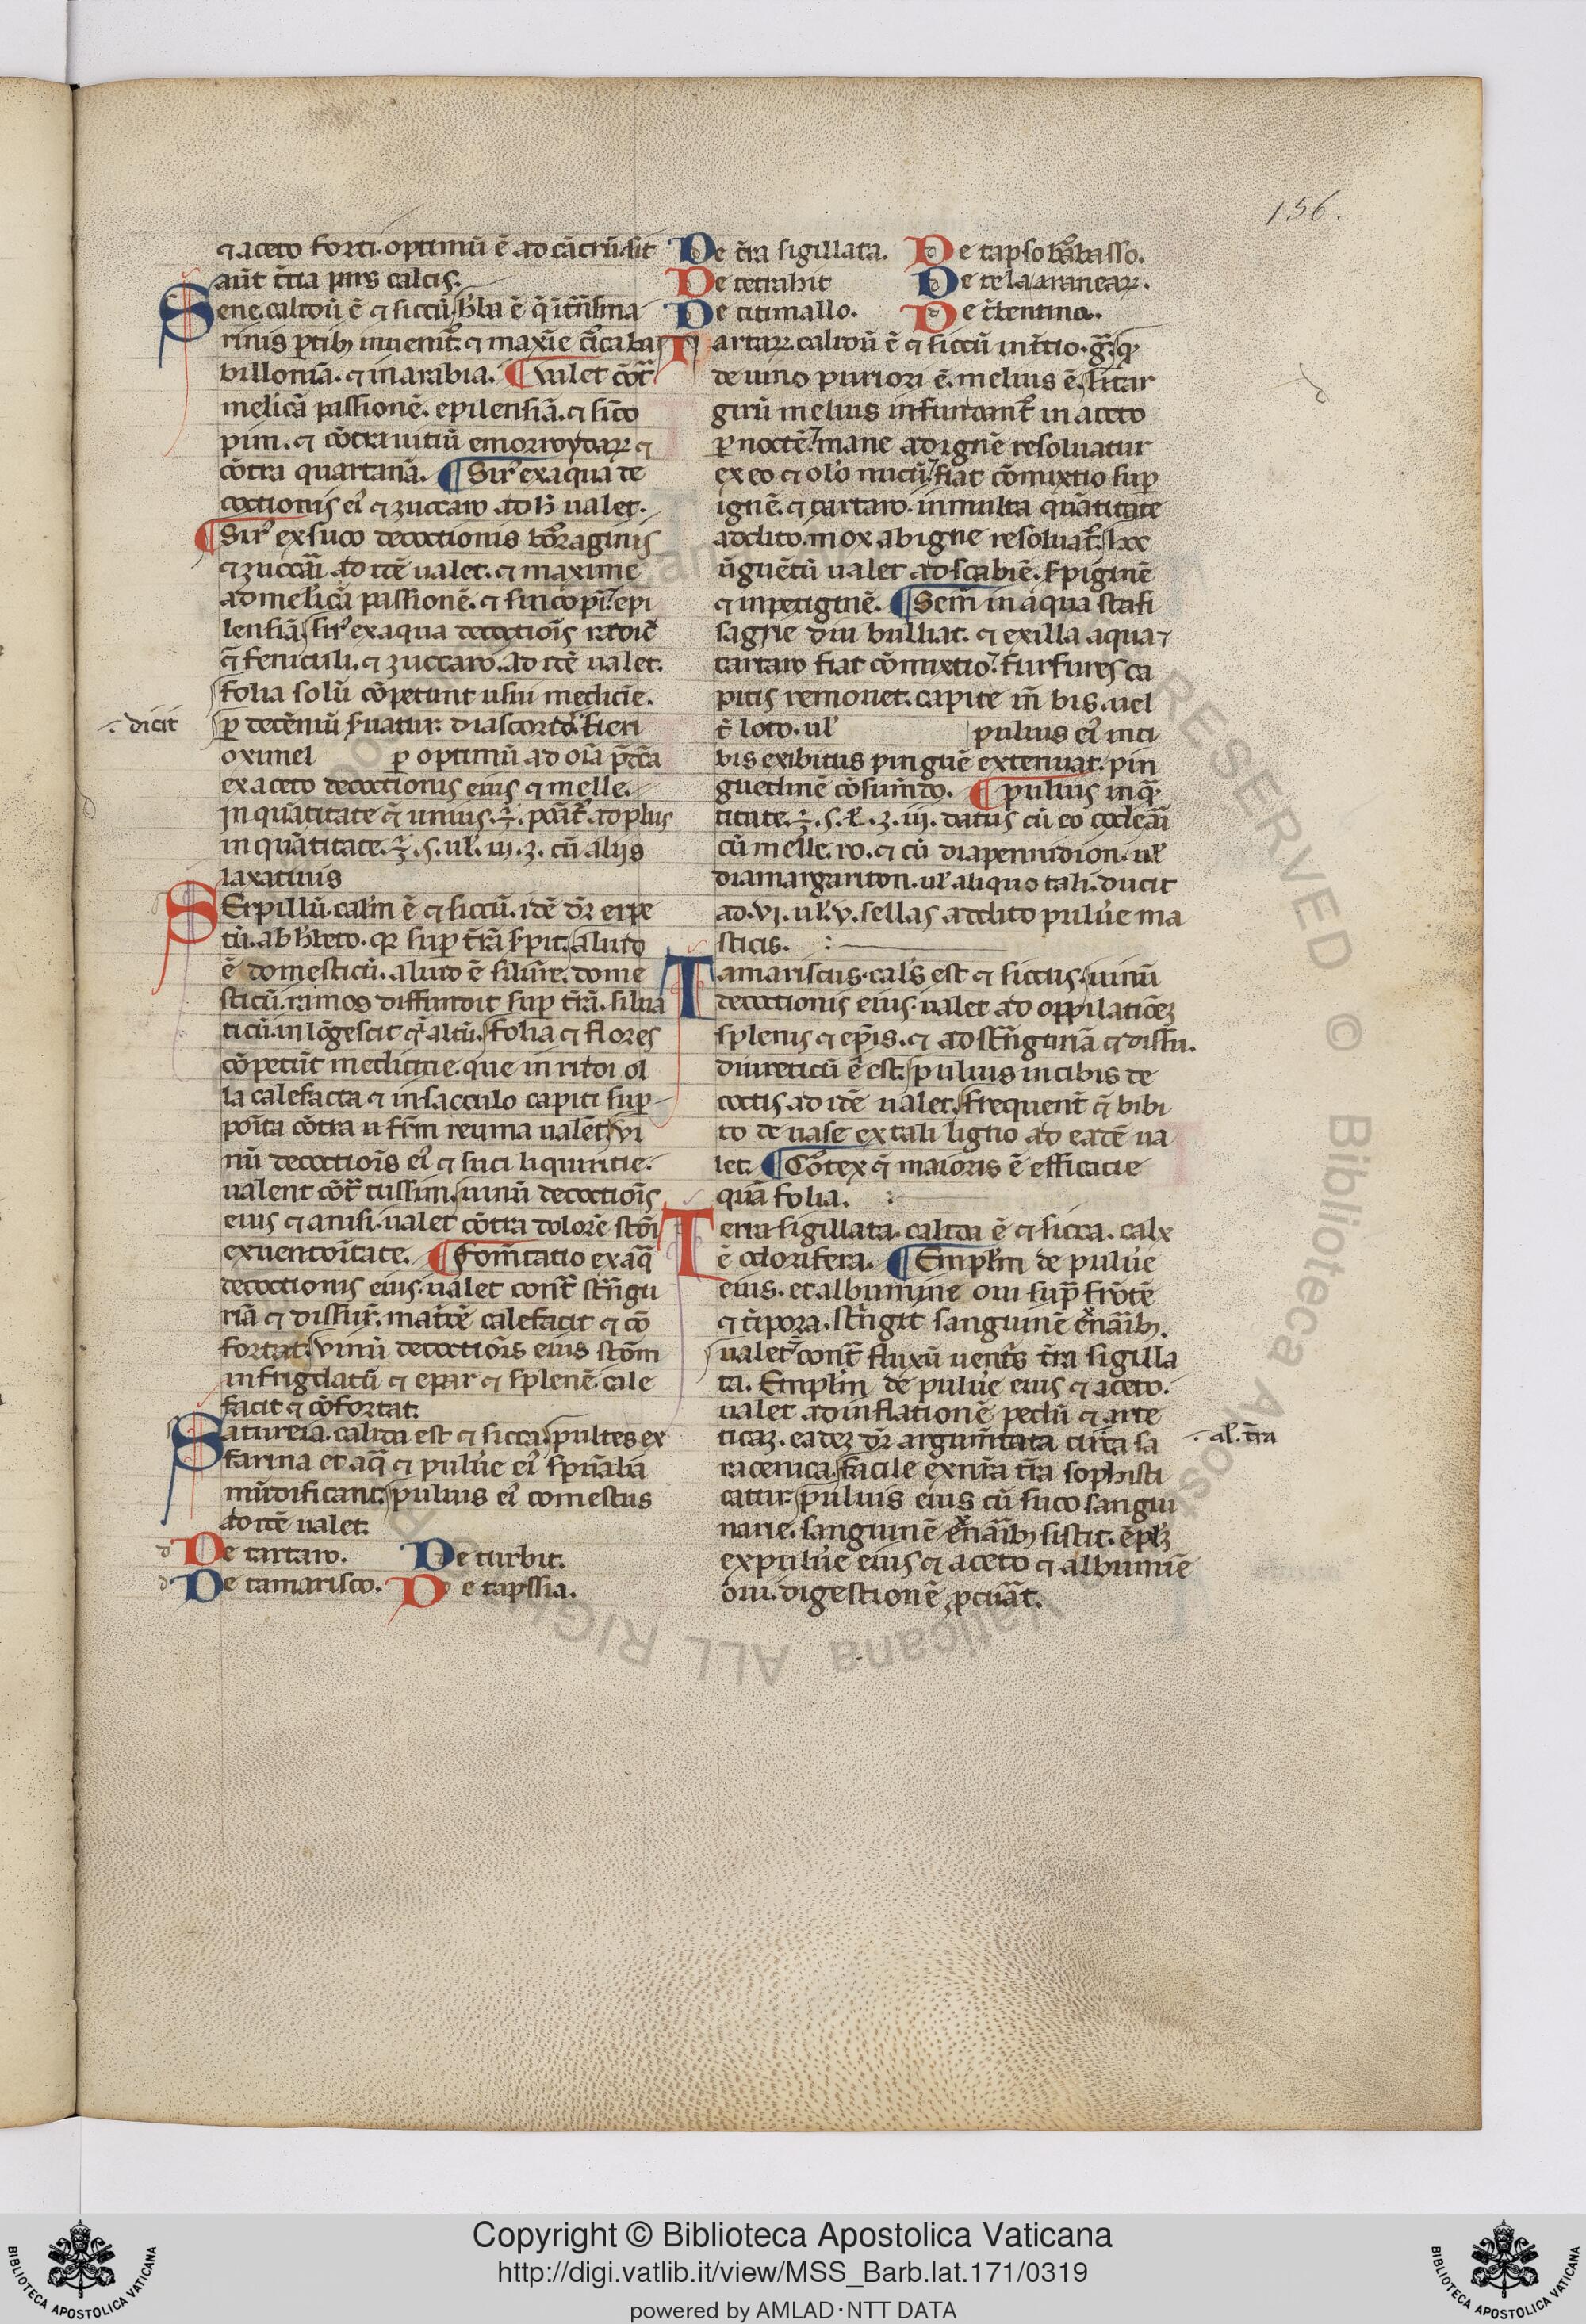 156.
⁊ aceto forti. optimũ ẽ ad cãcrũ. sit
aũt t̃tia pars calcis.
Sene. calidũ ẽ ⁊ siccũ. h̓ba ẽ q̃ ĩ t̃nsma
rinis ꝑtib; inuenit᷑. ⁊ maxĩe c̃ca ba
billoniã. ⁊ in arabia. ¶ Valet cõt̃
melicã passionẽ. epilensiã. ⁊ sĩco
pim. ⁊ cõtra uitiũ emorroydaꝝ ⁊
cõtra quartanã. ¶ Sir᷑ ex aqua de
coctionis ei᷒ ⁊ zuccaro ad h̓ ualet.
¶ Sir᷑ ex suco decoctionis bo᷑raginis
⁊ zuccari ad idẽ ualet. ⁊ maxime
ad melicã passionẽ. ⁊ sincopĩ. epi
lensiã. sir᷑ ex aqua decoctiõis radic̃
⁊ feniculi. ⁊ zuccaro. ad idẽ ualet.
folia solũ cõpetunt usui medicĩe.
. dicit
ꝑ decẽniũ s̃uatur. diascorid᷒. fieri
oximel ꝑ optimũ ad oĩa p̃dc̃a
ex aceto decoctionis eius ⁊ melle.
In quãtitate ⁊ unius. ℥. ponit᷑ ad plus
in quãtitate. ℥. s̃. ul̓. iij. ʒ. cũ alijs
laxatiuis
SErpillũ. cal̓m ẽ ⁊ siccũ. idẽ dr̃ erpe
tũ. ab h̓beto. qꝛ sup̃ t̃rã s̓pit. aliud
ẽ domesticũ. aliud ẽ silur̃e. dome
sticũ. ramos diffundit sup̃ t̃rã. silua
ticũ. in lõgescit ⁊ altũ. folia ⁊ flores
cõpetũt medicine. que in ritdi ol
la calefacta ⁊ in sacculo capiti sup̃
poĩta cõtra u fr̃m reuma ualẽt. vi
nũ decoctiõis ei᷒ ⁊ suci liquiritie.
ualent cõt̃ tussim. uinũ decoctiõis
eius ⁊ anisi. ualet cõtra dolorẽ stõi
ex uentoĩtate. ¶ Fomẽtatio ex aq̃
decoctionis eius. ualet cont̃ st̃ngu
riã ⁊ dissiur̃. mat̃cẽ calefacit ⁊ cõ
fortat. vinũ decoctiõis eius stõm
infrigdatũ ⁊ epar ⁊ splenẽ. cale
facit ⁊ cõfortat.
Satureia. calida est ⁊ sicca. pultes ex
farina et aq̃ ⁊ pulu̓e ei᷒ sp̃ualia
mũdificant. puluis ei᷒ comestus
ad idẽ ualet.
De tartaro. De turbit.
De tamarisco. De tapssia.
De t̃ra sigillata. De tapso b̃bãsso.
De tetrahit De tela araneaꝝ.
De titimallo. De t̓bentina.
Tartaꝝ. calidũ ẽ ⁊ siccũ in t̃tio. g̃. q̃
de uino puriori ẽ. melius ẽ. litar
girũ melius infundant᷑ in aceto
ꝑ noctẽ. mane ad ignẽ resoluatur
ex eo ⁊ ol̓o nucũ. fiat cõmixtio sup̃
ignẽ. ⁊ tartaro. in multa quãtitate
addito. mox ab igne resoluat᷑. hoc
ũguẽtũ ualet ad scabiẽ. s̓piginẽ
⁊ inpetiginẽ. ¶ Semẽ in aqua stafi
sagrie diu bulliat. ⁊ ex illa aqua ⁊
tartaro fiat cõmixtio. furfures ca
pitis remouet. capite iñ bis. uel
t̓ loto. ul̓ puluis ei᷒ in ci
bis exibitus pinguẽ extenuat. pin
guedinẽ cõsumẽdo. ¶ puluis in q̃
titate. ℥. s̃. ul̓. ʒ. iij. datus cũ eo coclearĩ
cũ melle. ro. ⁊ cũ diapennidion. ul̓
diamargariton. ul̓ aliquo tali. ducit
ad. vj. ul̓. v. sellas addito pulu̓e ma
sticis.
Tamariscus. cal̓s est ⁊ siccus. uinũ
decoctionis eius. ualet ad oppilatiõeꝫ
splenis ⁊ ep̃is. ⁊ ad st̃nguriã ⁊ dissu.
diureticũ ẽ est. puluis in cibis de
coctis. ad idẽ ualet. frequenẽ ⁊ bibi
to de uase ex tali ligno ad eadẽ ua
let. ¶ Cõrtex ⁊ maioris ẽ efficacie
quã folia.
Terra sigillata. calida ẽ ⁊ sicca. calx
ẽ odorifera. ¶ Empl̓m de pulu̓e
eius. et albumine oui sup̃ frõtẽ
⁊ tĩpora. st̃ngit sanguinẽ e᷑ narib;.
ualet. cont̃ fluxũ uent̓s t̃ra sigilla
ta. Empl̓m de pulu̓e eius ⁊ aceto.
ualet ad inflationẽ pedũ ⁊ arte
ticaꝫ. eadeꝫ dr̃ argum̃tata circa sa
. al̓. t̃ra
racenica. facile ex nr̃a t̃ra sophisti
catur. puluis eius cũ suco sangui
narie. sanguinẽ e᷑ narib; sistit. ẽpl̓ꝫ
ex pulu̓e eius ⁊ aceto ⁊ albumiẽ
oui. digestionẽ ꝓcurat.
Copyright © Biblioteca Apostolica Vaticana
http://digi.vatlib.it/view/MSS_Barb.lat.171/0319
powered by AMLAD·NTT DATA
BIBLIOTECA APOSTOLICA VATICANA
BIBLIOTECA APOSTOLICA VATICANA